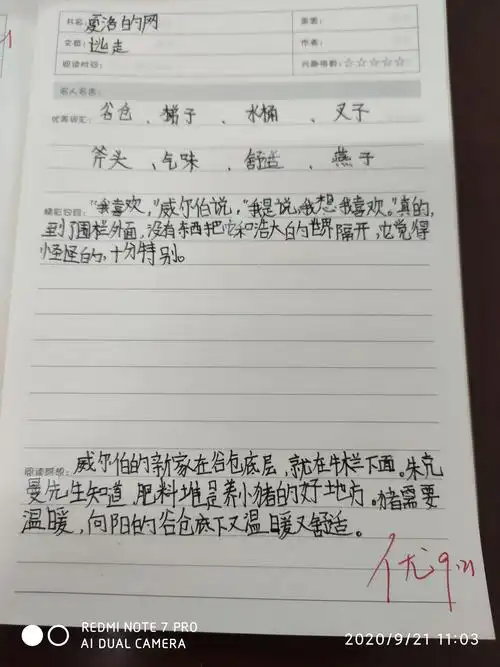 书名: 夏洛的网
类型:
文章: 逃走
作者:
阅读时间:
兴趣指数: ☆☆☆☆☆
名人名言:
优美词汇: 谷仓、梯子、水桶、叉子
斧头、气味、舒适、燕子
精彩句段: “我喜欢,”威尔伯说,“我是说,我想我喜欢。”真的,
到了围栏外面,没有东西把它和浩大的世界隔开,它觉得
怪怪的,十分特别。
阅读感想: 威尔伯的新家在谷仓底层,就在牛栏下面。朱克
曼先生知道,肥料堆是养小猪的好地方。猪需要
温暖,向阳的谷仓底下又温暖又舒适。
优 9.21
REDMI NOTE 7 PRO
AI DUAL CAMERA
2020/9/21 11:03